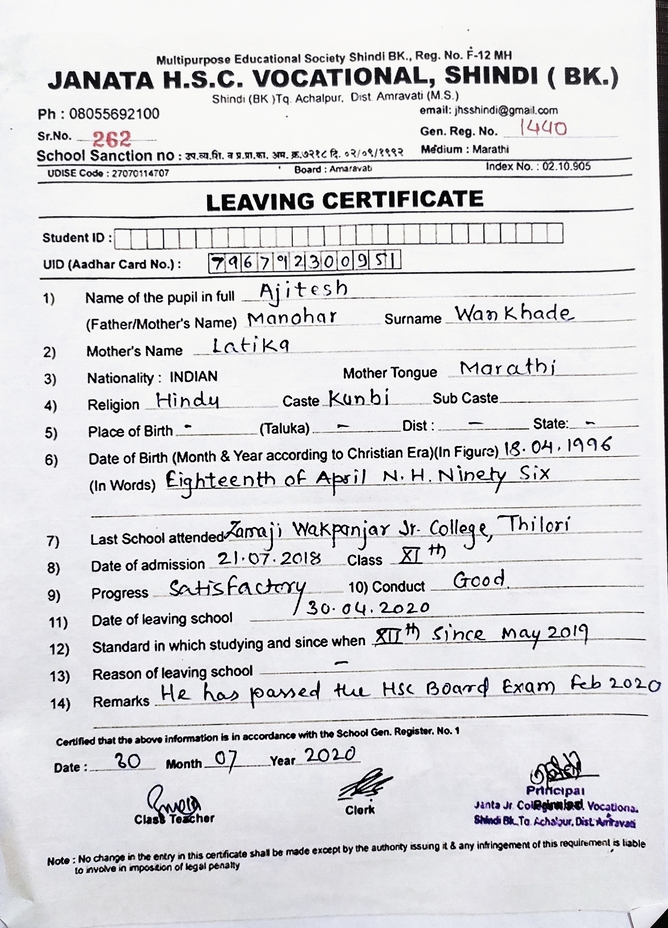 Multipurpose Educational Society Shindi BK., Reg. No. F-12 MH
JANATA H.S.C. VOCATIONAL, SHINDI ( BK.)
Shindi (BK )Tq. Achalpur, Dist. Amravati (M.S.)
Ph : 08055692100 email: jhsshindi@gmail.com
Sr.No. 262 Gen. Reg. No. 1440
School Sanction no : उप.व्य.शि. व प्र.प्रा.का. अम. क्र.७२१८ दि. ०२/०९/१९९२ Medium : Marathi
UDISE Code : 27070114707 Board : Amaravati Index No. : 02.10.905
LEAVING CERTIFICATE
Student ID :
UID (Aadhar Card No.) : 796792300951
1) Name of the pupil in full Ajitesh
(Father/Mother's Name) Manohar Surname Wankhade
2) Mother's Name Latika
3) Nationality : INDIAN Mother Tongue Marathi
4) Religion Hindu Caste Kunbi Sub Caste
5) Place of Birth - (Taluka) - Dist : - State: -
6) Date of Birth (Month & Year according to Christian Era)(In Figure) 18.04.1996
(In Words) Eighteenth of April N.H. Ninety Six
7) Last School attended Zamaji Wakpanjar Jr. College, Thilori
8) Date of admission 21.07.2018 Class XI th
9) Progress Satisfactory 10) Conduct Good.
11) Date of leaving school 30.04.2020
12) Standard in which studying and since when XII th since May 2019
13) Reason of leaving school -
14) Remarks He has passed the HSC Board Exam Feb 2020
Certified that the above information is in accordance with the School Gen. Register. No. 1
Date : 30 Month 07 Year 2020
Class Teacher Clerk Principal
Janta Jr. Vocationa.
Shindi Bk., Tq. Achalpur, Dist. Amravati
Note : No change in the entry in this certificate shall be made except by the authority issuing it & any infringement of this requirement is liable
to involve in imposition of legal penalty